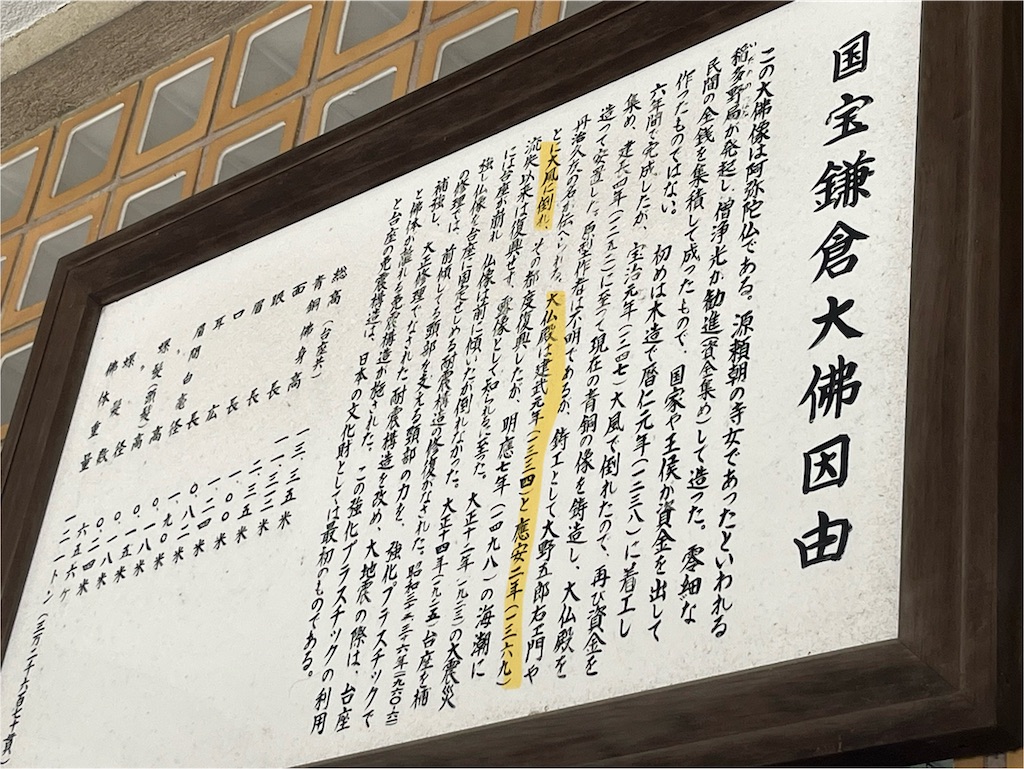 国宝鎌倉大佛因由
この大佛像は阿弥陀仏である。源頼朝の寺女であったといわれる
稲多野局が発起し、僧浄光が勧進(資金集め)して造った。零細な
民間の金銭を集積して成ったもので、国家や王侯が資金を出して
作ったものではない。
初めは木造で暦仁元年(一二三八)に着工し
六年間で完成したが、宝治元年(一二四七)大風で倒れたので、再び資金を
集め、建長四年(一二五二)に至って現在の青銅の像を鋳造し、大仏殿を
造って安置した。原型作者は不明であるが、鋳工として大野五郎右エ門や
丹治久友の名が伝へられる。大仏殿は建武元年(一三三四)と應安二年(一三六九)
とに大風に倒れ、その都度復興したが、明應七年(一四九八)の海潮に
流失以来は復興せず、露像として知られるに至った。大正十二年(一九二三)の大震災
には台座が崩れ 仏像は前に傾いたが倒れなかった。大正十四年(一九二五)台座を補
強し仏像を台座に固定せしめる耐震構造の修復がなされた。昭和三五-三六年(一九六〇-六一)
の修理では、前傾してる頭部を支える頸部の力を、強化プラスチックで
補強し、大正修理でなされた「耐震構造」を改め、大地震の際は、台座
と佛体が離れる免震構造が施された。この強化プラスチックの利用
と台座の免震構造は、日本の文化財としては最初のものである。
総高(台座共) 一三.三五米
青銅佛身高 一一.三一二米
面長 二.三五米
眼長 一.〇〇米
眉長 一.二四米
口広 〇.八二米
耳長 一.九〇米
眉間白毫径 〇.一八米
〃 〇.一五米
螺髪(頭髪)高 〇.一八米
〃 螺髪径 〇.二四米
螺髪数 六五六ケ
佛体重量 一二一トン(三万二千六百七十貫)